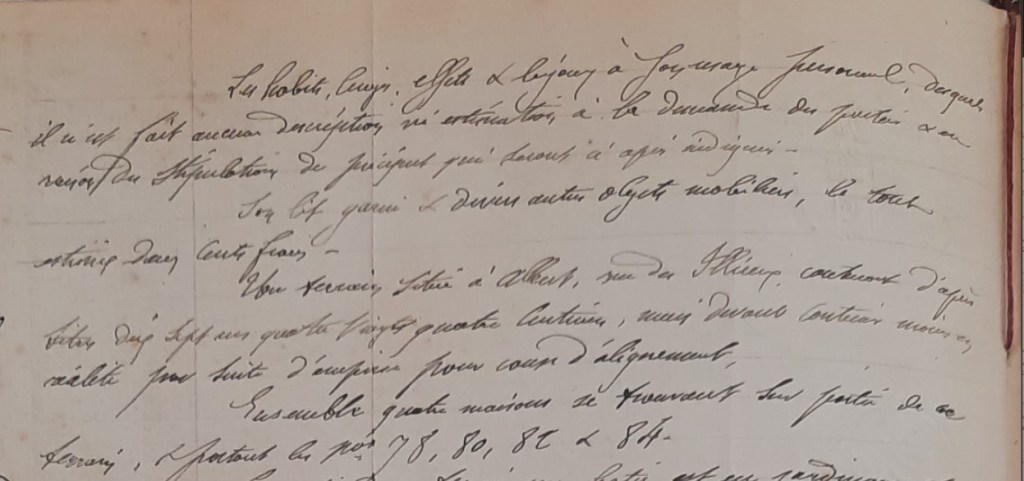 Les habits, linge, effets & bijoux à son usage personnel, desquels
il n'est fait aucune description ni estimation à la demande des parties & en
raison des stipulations de préciput qui seront ci après rédigées -
Son lit garni & divers autres objets mobiliers, le tout
estimé deux cents francs -
Un terrain situé à Albert, rue des contenant d'après
titres dix sept ares quatre vingt quatre centiares, mais devant contenir moins en
réalité par suite d'emprise pour cause d'alignement,
Ensemble quatre maisons se trouvant sur partie de ce
terrain, & portant les nos 78, 80, 82 & 84 -
est en jardin